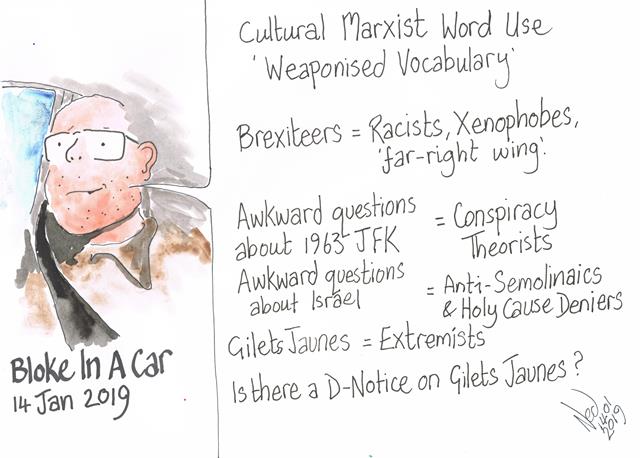 Cultural Marxist Word Use
'Weaponised Vocabulary'
Brexiteers = Racists, Xenophobes,
'far-right wing'.
Awkward questions
about 1963 JFK
= Conspiracy
Theorists
Awkward questions
about Israel
= Anti-Semolinaics
& Holy Cause Deniers
Gilets Jaunes = Extremists
Is there a D-Notice on Gilets Jaunes?
Bloke In A Car
14 Jan 2019
Ned
14.01
2019